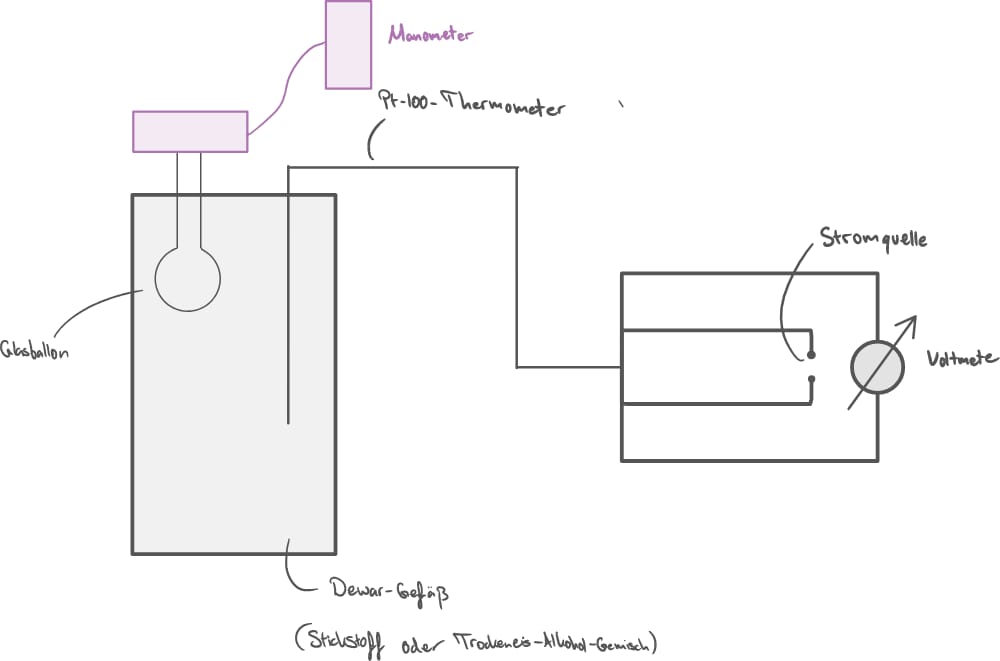 Manometer
Pt-100-Thermometer
Stromquelle
Glasballon
Voltmete
Dewar-Gefäß
(Stickstoff oder Trockeneis-Alkohol-Gemisch)